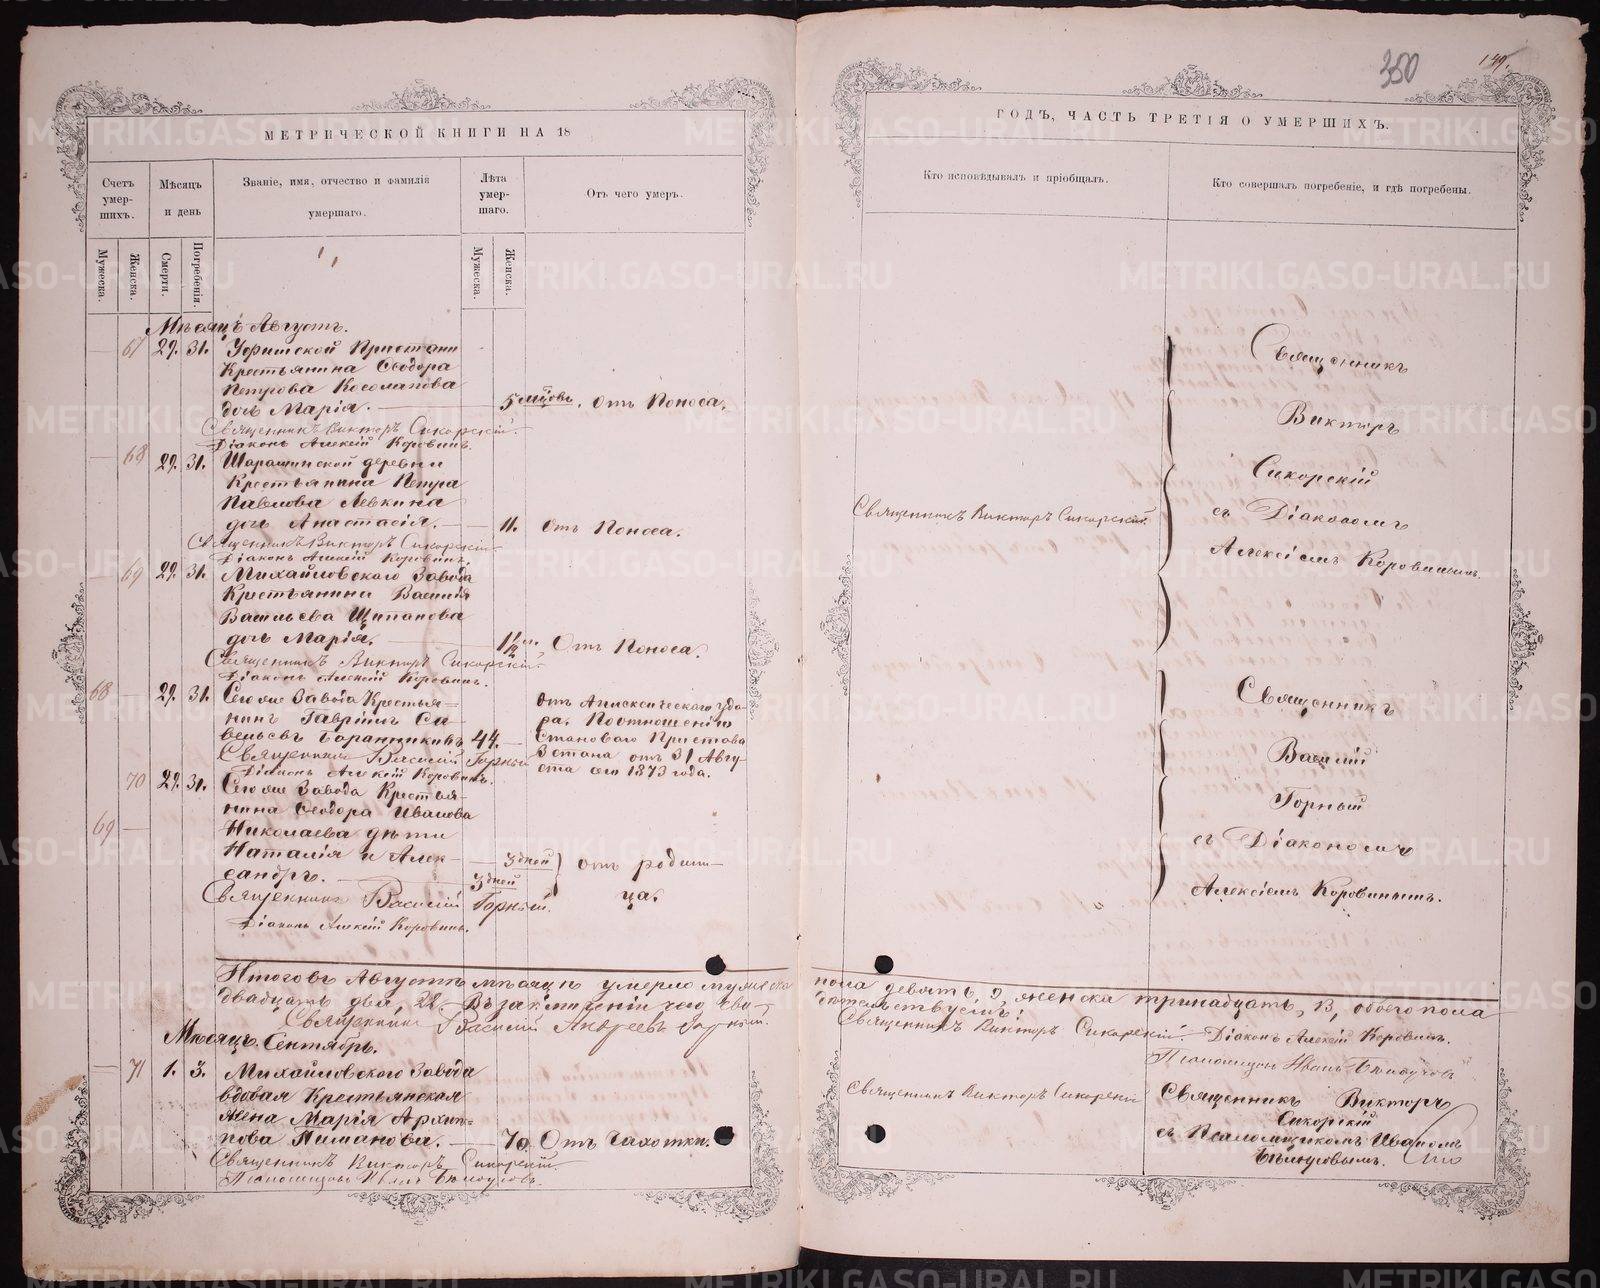 МЕТРИЧЕСКОЙ КНИГИ НА 18
Счетъ умер-шихъ.
Мѣсяцъ и день
Званіе, имя, отчество и фамилія умершаго.
Лѣта умер-шаго.
Отъ чего умеръ.
Мужеска.
Женска.
Смерти.
Погребенія.
Мужеска.
Женска.
Мѣсяцъ Августъ.
67 29. 31. Уфимской Пристани
Крестьянина Ѳеодора
Петрова Косолапова
дочь Марія. 5 мѣсцовъ. Отъ Поноса.
Священникъ Викторъ Сикорскій.
Діаконъ Алексій Коровинъ.
68 29. 31. Шарашинской деревни
Крестьянина Петра
Павлова Левкина
дочь Анастасія. 11. Отъ Поноса.
Священникъ Викторъ Сикорскій
Діаконъ Алексій Коровинъ.
69 29. 31. Михайловского Завода
Крестьянина Василія
Васильева Щипанова
дочь Марія. 1½ Отъ Поноса.
Священникъ Викторъ Сикорскій.
Діаконъ Алексій Коровинъ.
68 29. 31. Сегоже Завода Крестья-
нинъ Гавріилъ Са-
вельевъ Баранниковъ 44.
отъ Апоплексическаго уда-
ра. По отношенію
Становаго Пристава
3 стана отъ 31 Авгу-
ста сего 1873 года.
Священникъ Василій Горный
Діаконъ Алексій Коровинъ.
70 29. 31. Сегоже Завода Крестья-
нина Ѳеодора Иванова
69 Николаева дѣти
Наталія и Алек- 3 дней
сандръ. 3 дней
отъ родим-
ца.
Священникъ Василій Горный.
Діаконъ Алексій Коровинъ.
Итого въ Августѣ мѣсяцѣ умерло мужеска
двадцать два, 22. Въ заключеніи чего сви-
Священникъ Василій Андреевъ Горный.
Мѣсяцъ Сентябрь.
71 1. 3. Михайловского Завода
вдовая Крестьянская
жена Марія Архип-
пова Пиманова. 70. Отъ Чахотки.
Священникъ Викторъ Сикорскій
Псаломщикъ Иванъ
350
149.
ГОДЪ, ЧАСТЬ ТРЕТІЯ О УМЕРШИХЪ.
Кто исповѣдывалъ и пріобщалъ.
Кто совершалъ погребеніе, и гдѣ погребены.
Священникъ
Викторъ
Сикорскій
съ Діакономъ
Алексіемъ Коровинымъ.
Священникъ Викторъ Сикорскій.
Священникъ
Василій
Горный
съ Діакономъ
Алексіемъ Коровинымъ.
пола девять, 9, женска тринадцать, 13, обоего пола
дѣтельствуемъ:
Священникъ Викторъ Сикорскій. Діаконъ Алексій Коровинъ.
Псаломщикъ Иванъ
Священникъ Викторъ Сикорскій
Священникъ Викторъ
Сикорскій
съ Псаломщикомъ Иваномъ
METRIKI.GASO-URAL.RU